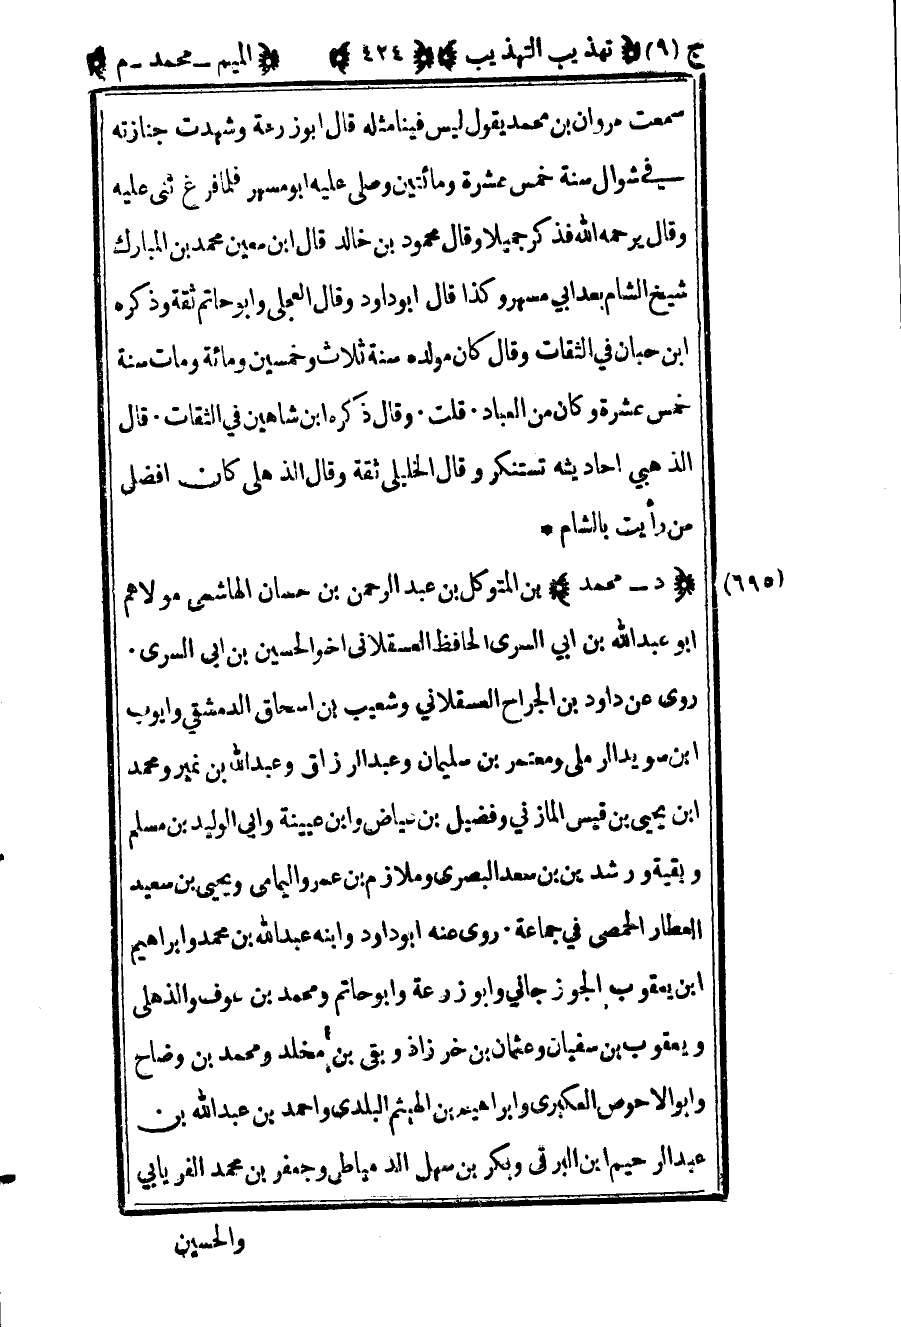 ج (٩) ﴿ تهذيب التهذيب ﴾ ﴿ ٤٢٤ ﴾ ﴿ الميم ـ محمد ـ م ﴾
سمعت مروان بن محمد يقول ليس فينا مثله قال ابوزرعة وشهدت جنازته
في شوال سنة خمس عشرة ومائتين وصلى عليه ابومسهر فلما فرغ ثنى عليه
وقال يرحمه الله فذكر جميلا وقال محمود بن خالد قال ابن معين محمد بن المبارك
شيخ الشام بعد ابي مسهر وكذا قال ابوداود وقال العجلى وابوحاتم ثقة وذكره
ابن حبان في الثقات وقال كان مولده سنة ثلاث وخمسين ومائة ومات سنة
خمس عشرة وكان من العباد · قلت · وقال ذكره ابن شاهين في الثقات · قال
الذهبي احاديثه تستنكر وقال الخليلى ثقة وقال الذهلى كان افضلى
من رأيت بالشام *
(٦٩٥) ﴿ د ـ محمد ﴾ بن المتوكل بن عبد الرحمن بن حسان الهاشمى مولاهم
ابو عبد الله بن ابي السرى الحافظ العسقلانى اخو الحسين بن ابى السرى ·
روى عن داود بن الجراح العسقلاني وشعيب بن اسحاق الدمشقي وايوب
ابن سويد الرملى ومعتمر بن سليمان وعبد الرزاق وعبد الله بن نمير ومحمد
ابن يحيى بن قيس المازني وفضيل بن عياض وابن عيينة وابى الوليد بن مسلم
وبقية ورشدين بن سعد البصرى وملازم بن عمرو اليمامى ويحيى بن سعيد
العطار الحمصي في جماعة · روى عنه ابوداود وابنه عبد الله بن محمد وابراهيم
ابن يعقوب الجوزجاني وابو زرعة وابوحاتم ومحمد بن عوف والذهلى
ويعقوب بن سفيان وعثمان بن خرزاذ وبقى بن مخلد ومحمد بن وضاح
وابو الاحوص العكبرى وابراهيم بن الهيثم البلدى واحمد بن عبد الله بن
عبد الرحيم ابن البرقى وبكر بن سهل الدمياطى وجعفر بن محمد الفريابي
والحسين